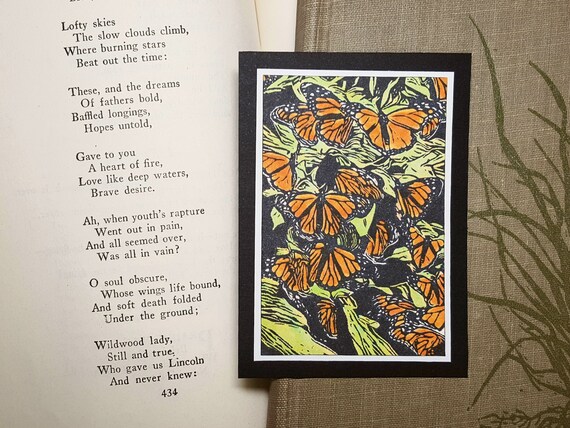 Lofty skies
The slow clouds climb,
Where burning stars
Beat out the time:
These, and the dreams
Of fathers bold,
Baffled longings,
Hopes untold,
Gave to you
A heart of fire,
Love like deep waters,
Brave desire.
Ah, when youth's rapture
Went out in pain,
And all seemed over,
Was all in vain?
O soul obscure,
Whose wings life bound,
And soft death folded
Under the ground;
Wildwood lady,
Still and true,
Who gave us Lincoln
And never knew:
434